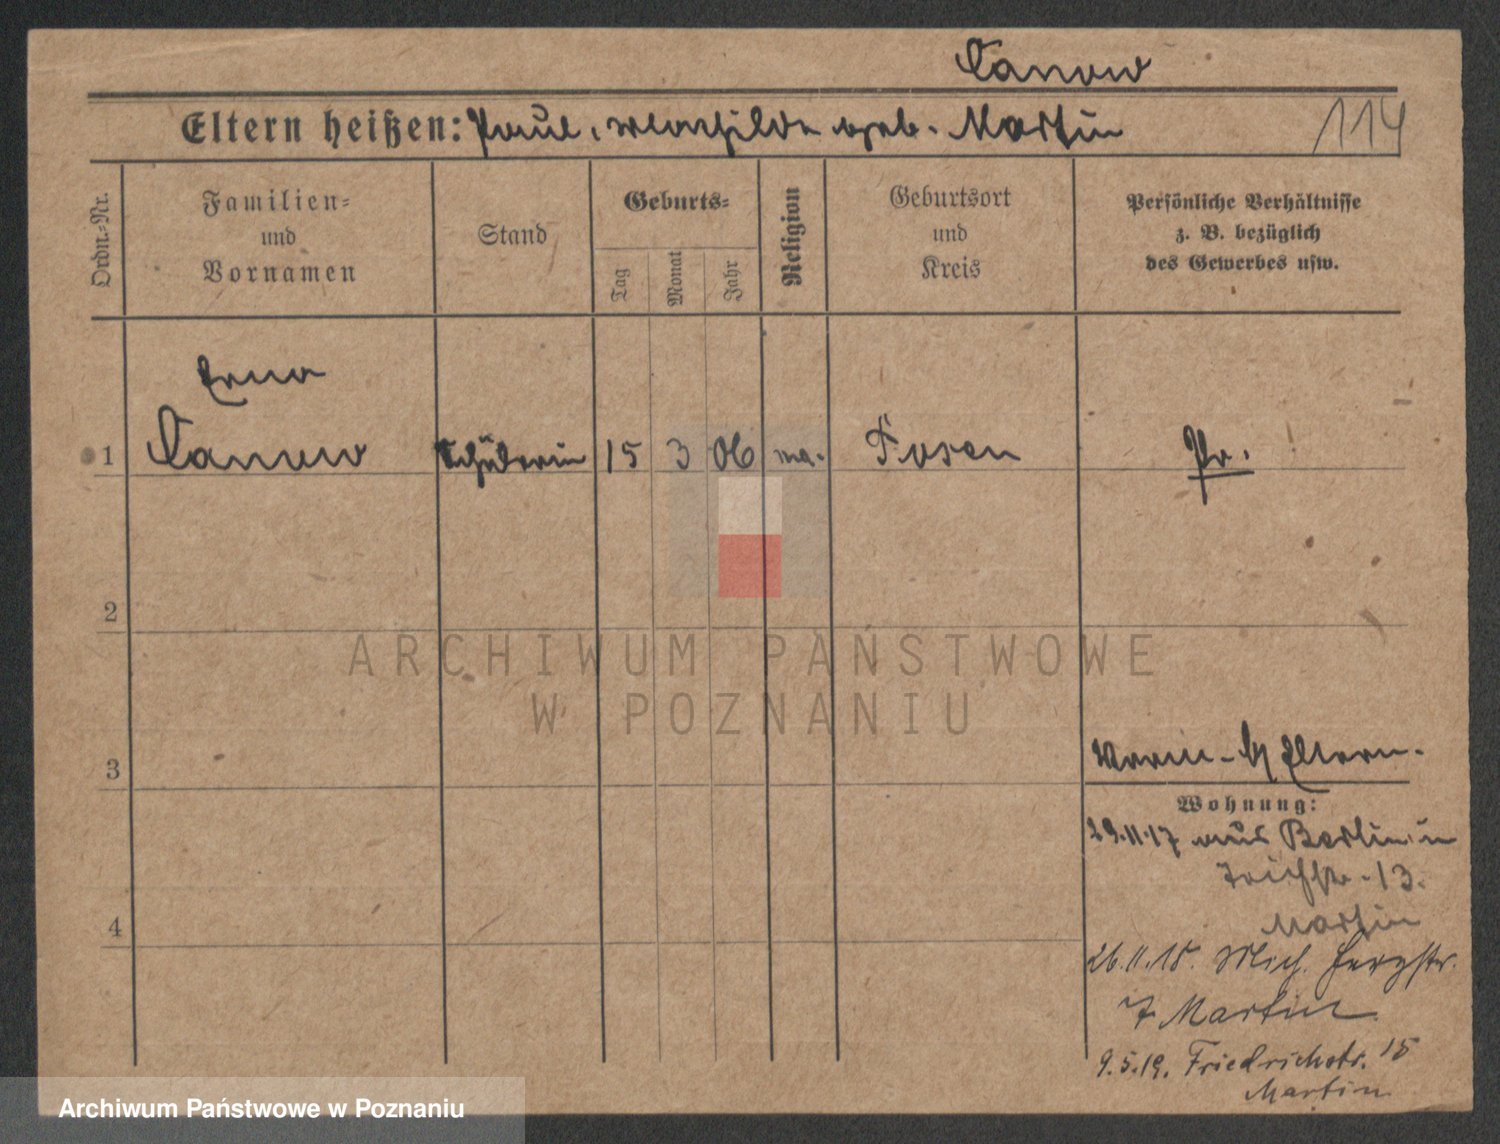 Canow
Eltern heißen: Paul, Mathilde geb. Martin
114
Ordn.-Nr.
Familien-
und
Vornamen
Stand
Geburts-
Tag
Monat
Jahr
Religion
Geburtsort
und
Kreis
Persönliche Verhältnisse
z. B. bezüglich
des Gewerbes usw.
Erna
1 Canow Schülerin 15 3 06 Posen Pr.
2
3
Eltern.
Wohnung:
29.11.17 aus Berlin
13.
Martin
4
26.11.18.
7 Martin
9.5.19. Friedrichstr. 15
Martin
ARCHIWUM PAŃSTWOWE
W POZNANIU
Archiwum Państwowe w Poznaniu